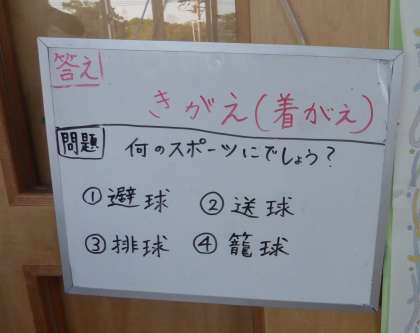 答え
きがえ(着がえ)
問題 何のスポーツにでしょう?
①避球 ②送球
③排球 ④籠球